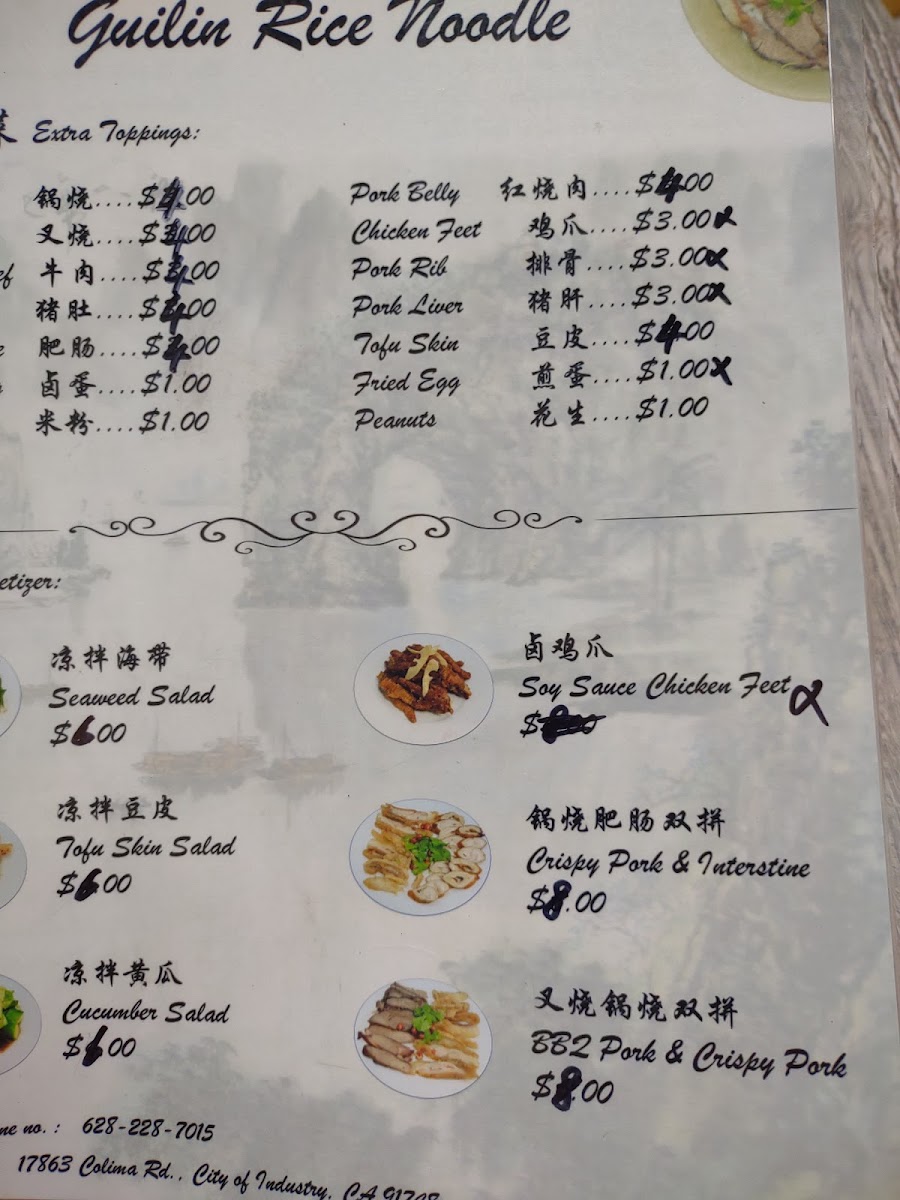 Guilin Rice Noodle
菜 Extra Toppings:
锅烧....$4.00
叉烧....$4.00
牛肉....$4.00
猪肚....$4.00
肥肠....$4.00
卤蛋....$1.00
米粉....$1.00
Pork Belly 红烧肉....$4.00
Chicken Feet 鸡爪....$3.00 x
Pork Rib 排骨....$3.00 x
Pork Liver 猪肝....$3.00 x
Tofu Skin 豆皮....$4.00
Fried Egg 煎蛋....$1.00 x
Peanuts 花生....$1.00
etizer:
凉拌海带
Seaweed Salad
$6.00
凉拌豆皮
Tofu Skin Salad
$6.00
凉拌黄瓜
Cucumber Salad
$6.00
卤鸡爪
Soy Sauce Chicken Feet x
$
锅烧肥肠双拼
Crispy Pork & Interstine
$8.00
叉烧锅烧双拼
BBQ Pork & Crispy Pork
$8.00
ne no.: 628-228-7015
17863 Colima Rd., City of Industry, CA 91748